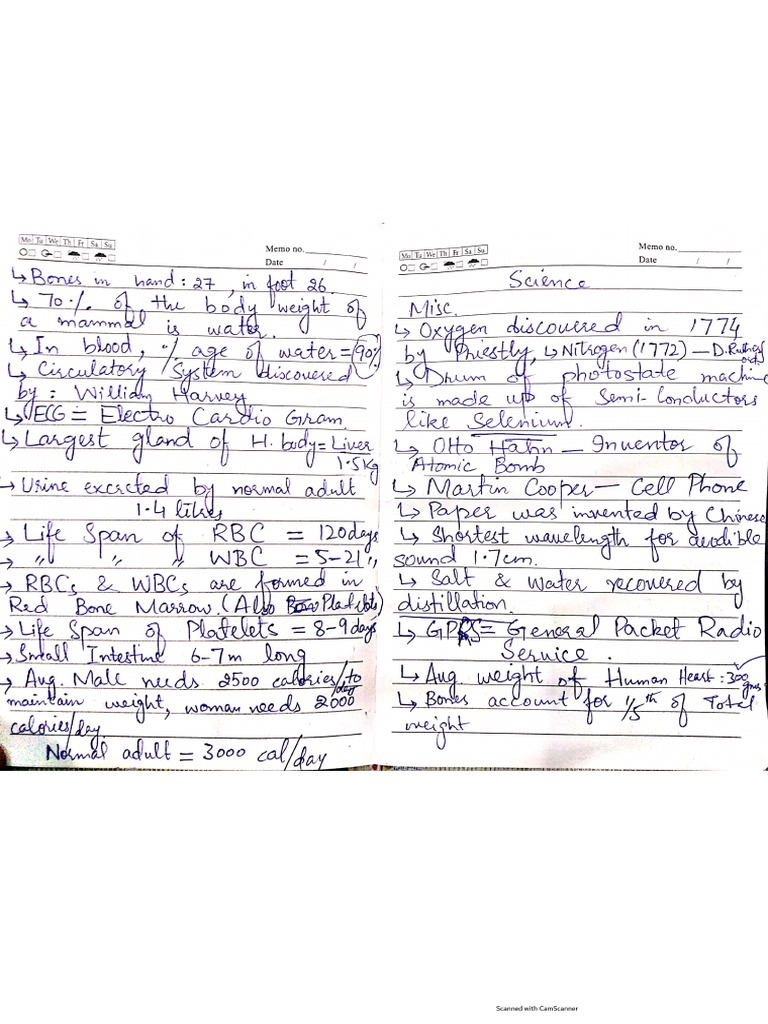 Mo Tu We Th Fr Sa Su
Memo no.
Date / /
↳ Bones in hand : 27 , in foot 26.
↳ 70 % of the body weight of
a mammal is water.
↳ In blood, % age of water = 90%
↳ Circulatory System discovered
by : William Harvey
↳ ECG = Electro Cardio Gram
↳ Largest gland of H. body = Liver
1.5 kg
→ Urine excreted by normal adult
1.4 litres
→ Life Span of RBC = 120 days
→ " " WBC = 5-21 "
→ RBCs & WBCs are formed in
Red Bone Marrow. (Also Platelets)
→ Life Span of Platelets = 8-9 days
→ Small Intestine 6-7m long
→ Avg. Male needs 2500 calories/day to
maintain weight, woman needs 2000
calories/day
Normal adult = 3000 cal/day
Mo Tu We Th Fr Sa Su
Memo no.
Date / /
Science
Misc.
↳ Oxygen discovered in 1774
by Priestly, ↳ Nitrogen (1772) – D. Rutherford
↳ Drum of photostate machine
is made up of Semi-Conductors
like Selenium.
↳ Otto Hahn – Inventor of
Atomic Bomb
↳ Martin Cooper – Cell Phone
↳ Paper was invented by Chinese
↳ Shortest wavelength for audible
sound 1.7cm.
↳ Salt & Water recovered by
distillation.
↳ GPRS = General Packet Radio
Service.
↳ Avg. weight of Human Heart : 300 gms
↳ Bones account for 1/5th of Total
weight
Scanned with CamScanner